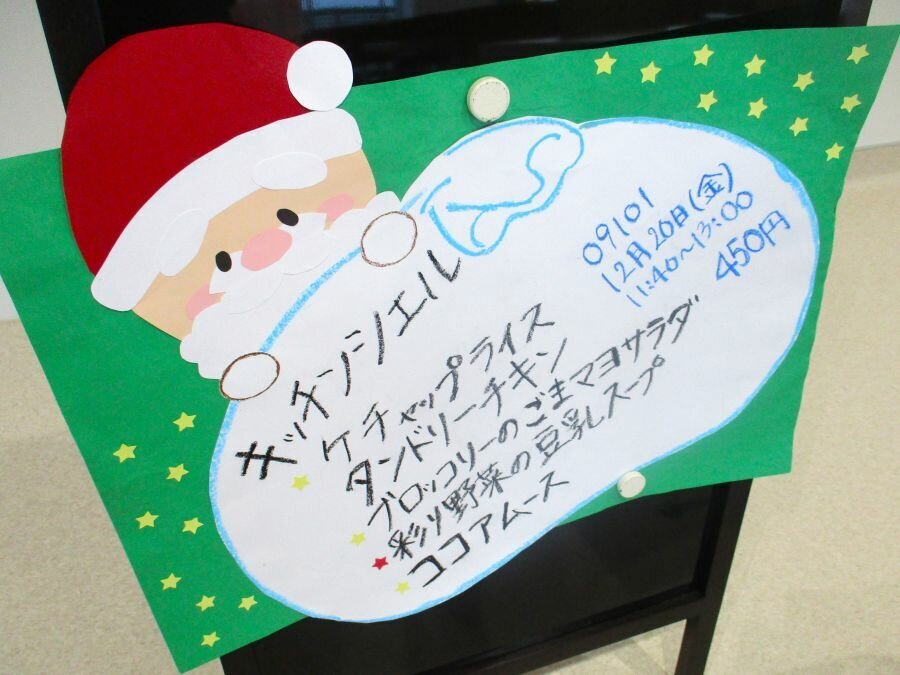 キッチンシエル
09101
12月26日(金)
11:40~13:00
450円
ケチャップライス
タンドリーチキン
ブロッコリーのごまマヨサラダ
彩り野菜の豆乳スープ
ココアムース